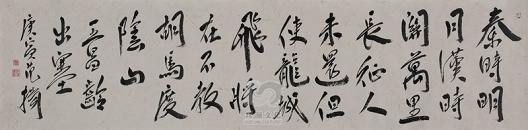 秦時明
月漢時
關萬里
長征人
未還但
使龍城
飛將
在不教
胡馬度
陰山
王昌齡
出塞
庚寅范